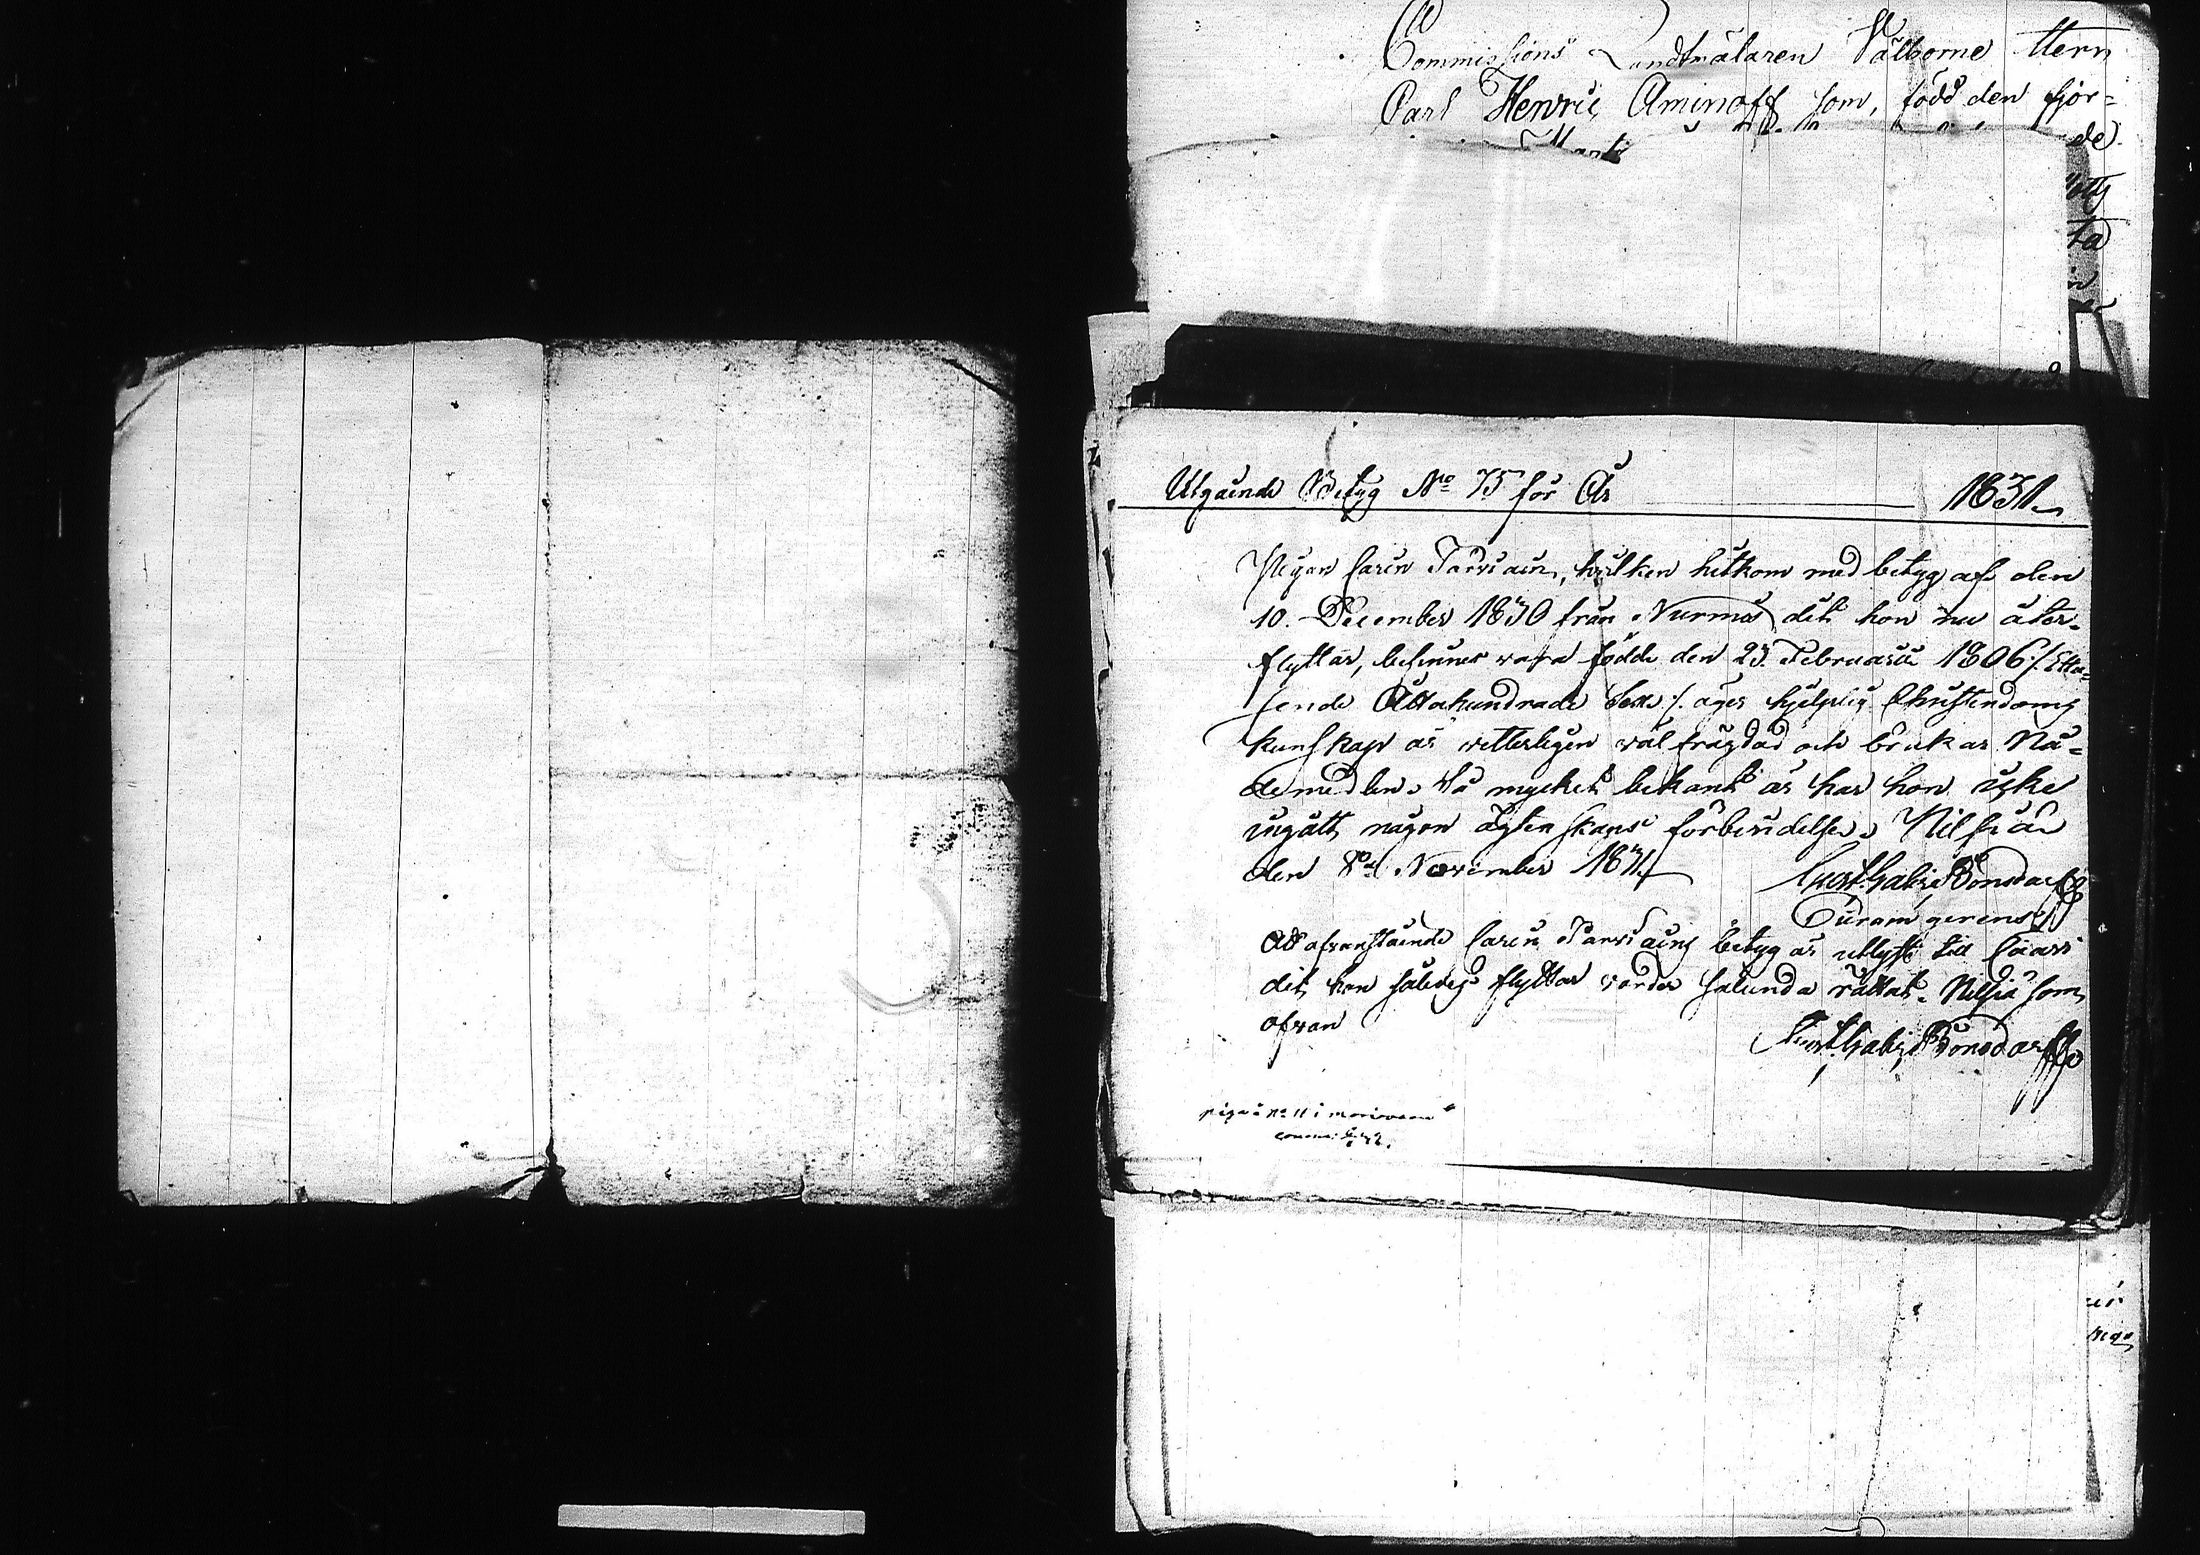 Commissions Landtmätaren Välborne Herr
Carl Henric Aminoff som, född den fjor-
de
Utgående Betyg No 75 för År 1831
Pigan Carin Parviain, hvilken hitkom med betyg af den
10. December 1830 från Nurmis dit hon nu åter-
flyttar, befinnes vara födde den 23. Februarii 1806 /: Ettu-
sende Åttahundrade Sex :/ äger hjelplig Christendoms
kunskap är vetterligen väl frägdad och brukar Nå-
demedlen. Så mycket bekant är har hon icke
ingått någon ägtenskaps förbindelse. Nilsiä
den 8de November 1831
Gust. Gabr. Bonsdorff
Curam gerens
Att ofvanstående Carin Parviains betyg är utlyst till Caavi
dit hon således flyttar varder sålunda rättat. Nilsiä som
ofvan
Gust. Gabr. Bonsdorff
piga i No 11 i